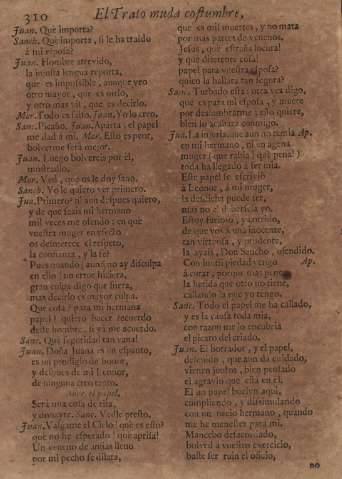 310
El Trato muda costumbre,
Juan. Què importa?
Sanch. Què importa, si le ha traido
à mi esposa?
Juan. Hombre atrevido,
la injusta lengua reporta,
que es impossible, aunque yerro
otro mayor, que es mio,
y otro mas vil, que es decirlo.
Mar. Todo es falso. Juan. Yo lo creo.
Sanc. Picaño. Juan. Aparta: el papel
me dad à mi. Mar. Esto es peor,
bolverme serà mejor.
Juan. Luego bolvereis por èl,
mostradlo.
Mar. Ved, que os le doy sano.
Sanch. Yo le quiero ver primero.
Jua. Primero? ni aun despues quiero,
y de que seais mi hermano
mil veces me ofendo; en què
vuestra muger en efecto
os desmerece el respeto,
la confianza, y la fè?
Pues quando aun no ay disculpa
en ello un error hiciera,
gran culpa digo que fuera,
mas decirlo es mayor culpa.
Que cosa? para mi hermana
papel? quiero hacer recuerdo
deste hombre, si yà me acuerdo.
Sanc. Què seguridad tan vana!
Juan. Doña Juana es un espanto,
es un prodigio de honor,
y despues de mi Leonor,
de ninguna creo tanto.
Abre el papel.
Serà una cosa de risa,
y donayre. Sanc. Vedle presto.
Juan. Valgame el Cielo! què es esto?
què no he esperado! què aprisa!
Un veneno de ansias lleno
por mi pecho se dilata,
que es mil muertes, y no mata
por mas partes de veneno.
Jesus, què estraña locura!
y què diferente cosa!
papel para vuestra esposa?
quien la hallara tan segura?
Sanc. Turbado està: otra vez digo,
que es para mi esposa, y muere
por deslumbrarme; esso quiere,
bien lo alcanzo conmigo.
Jua. La injuria, que aun no temia Ap.
en mi hermano, ni en agena
muger (què rabia! què pena!)
toda ha llegado à ser mia.
Este papel se escriviò
à Leonor, à mi muger,
la desdicha puede ser,
mas no el diversela yo.
Estoy furioso, y corrido,
de que vos à una inocente,
tan virtuosa, y prudente,
la ayais, Don Sancho, ofendido.
Con justa piedad vengo Ap.
à curar, porque mas pene,
la herida que otro no tiene,
callando la que yo tengo.
Sanc. Todo el papel me ha callado,
y es la causa toda mia,
con razon me lo encubria
el picaro del criado.
Juan. El borrador, y el papel,
descuido, que aun dà cuidado,
vieron juntos, bien pensado
el agravio que està en èl.
El un papel buelvo aqui,
cumpliendo, y dissimulando
con mi necio hermano, quando
me he menester para mi.
Mancebo desatinado,
bolved à vuestro exercicio,
baste ser ruin el oficio,
no